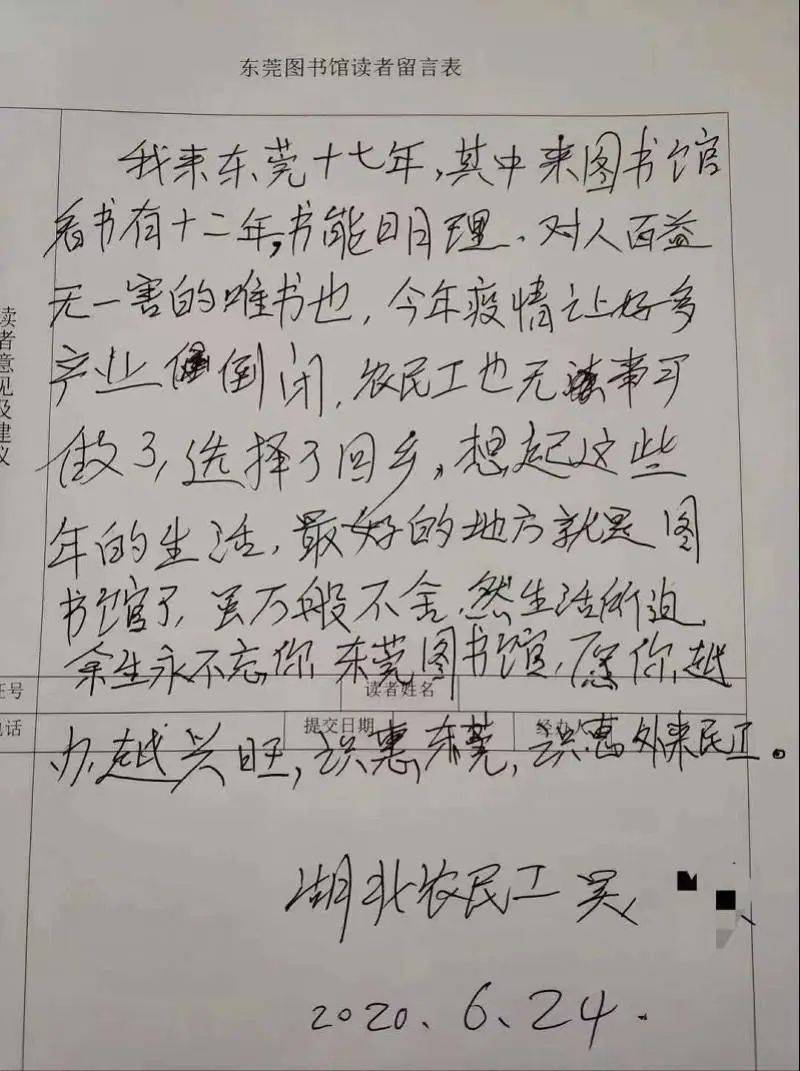 东莞图书馆读者留言表
我来东莞十七年，其中来图书馆
看书有十二年，书能明理、对人百益
无一害的唯书也，今年疫情让好多
产业倒闭，农民工也无事可
做了，选择了回乡，想起这些
年的生活，最好的地方就是图
书馆了，虽万般不舍，然生活所迫，
余生永不忘你，东莞图书馆，愿你越
办越兴旺，识惠东莞，识惠外来民工。
读者意见及建议
证号
读者姓名
电话
提交日期
经办人
湖北农民工 吴
2020、6、24.